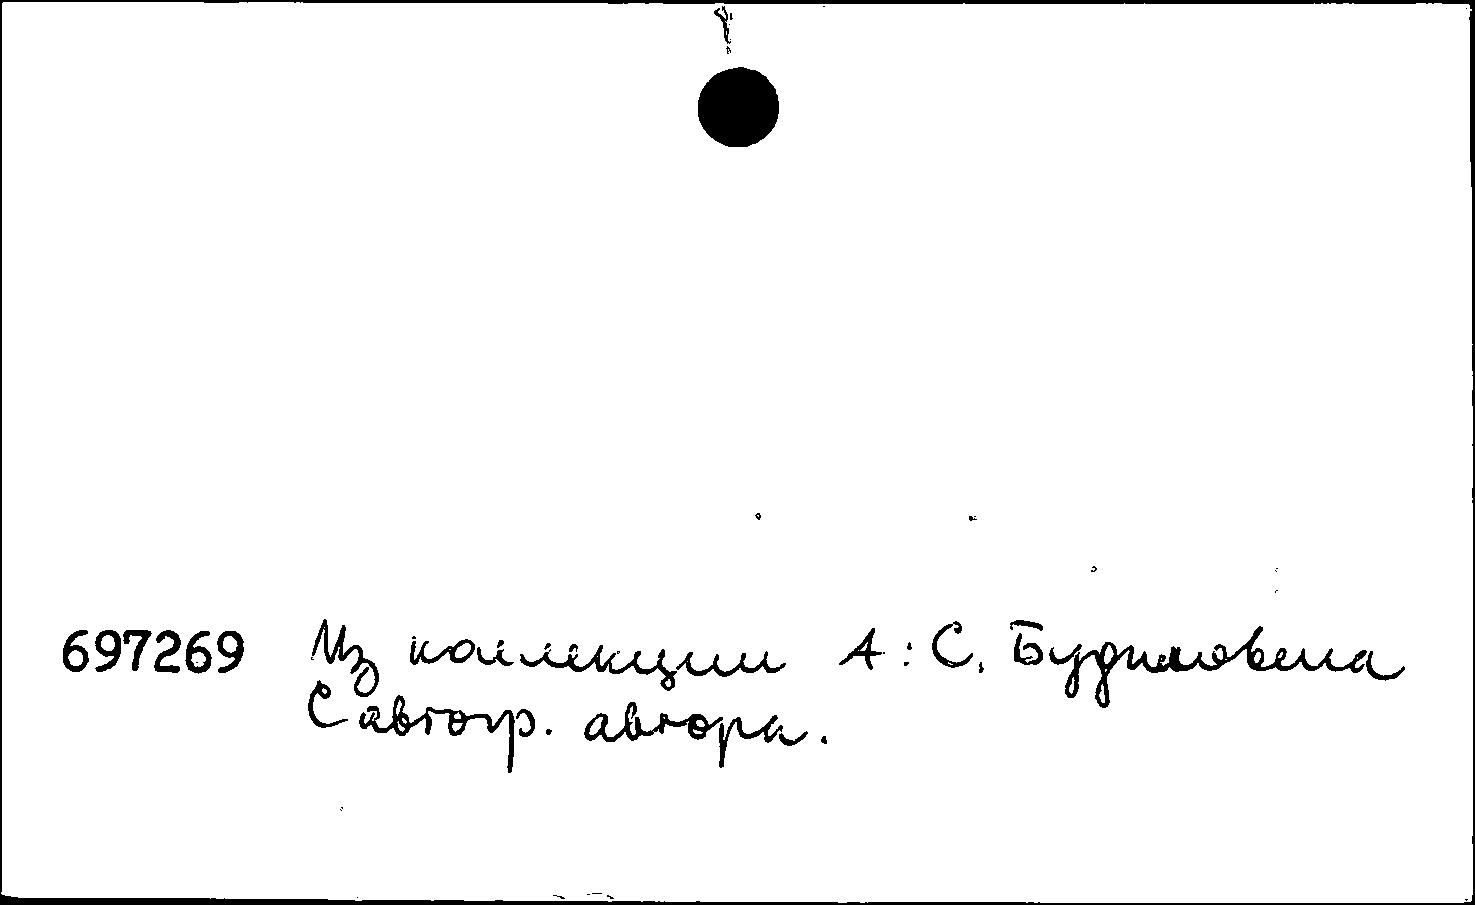 697269 Из коллекции А. С. Будиловича
С автогр. автора.